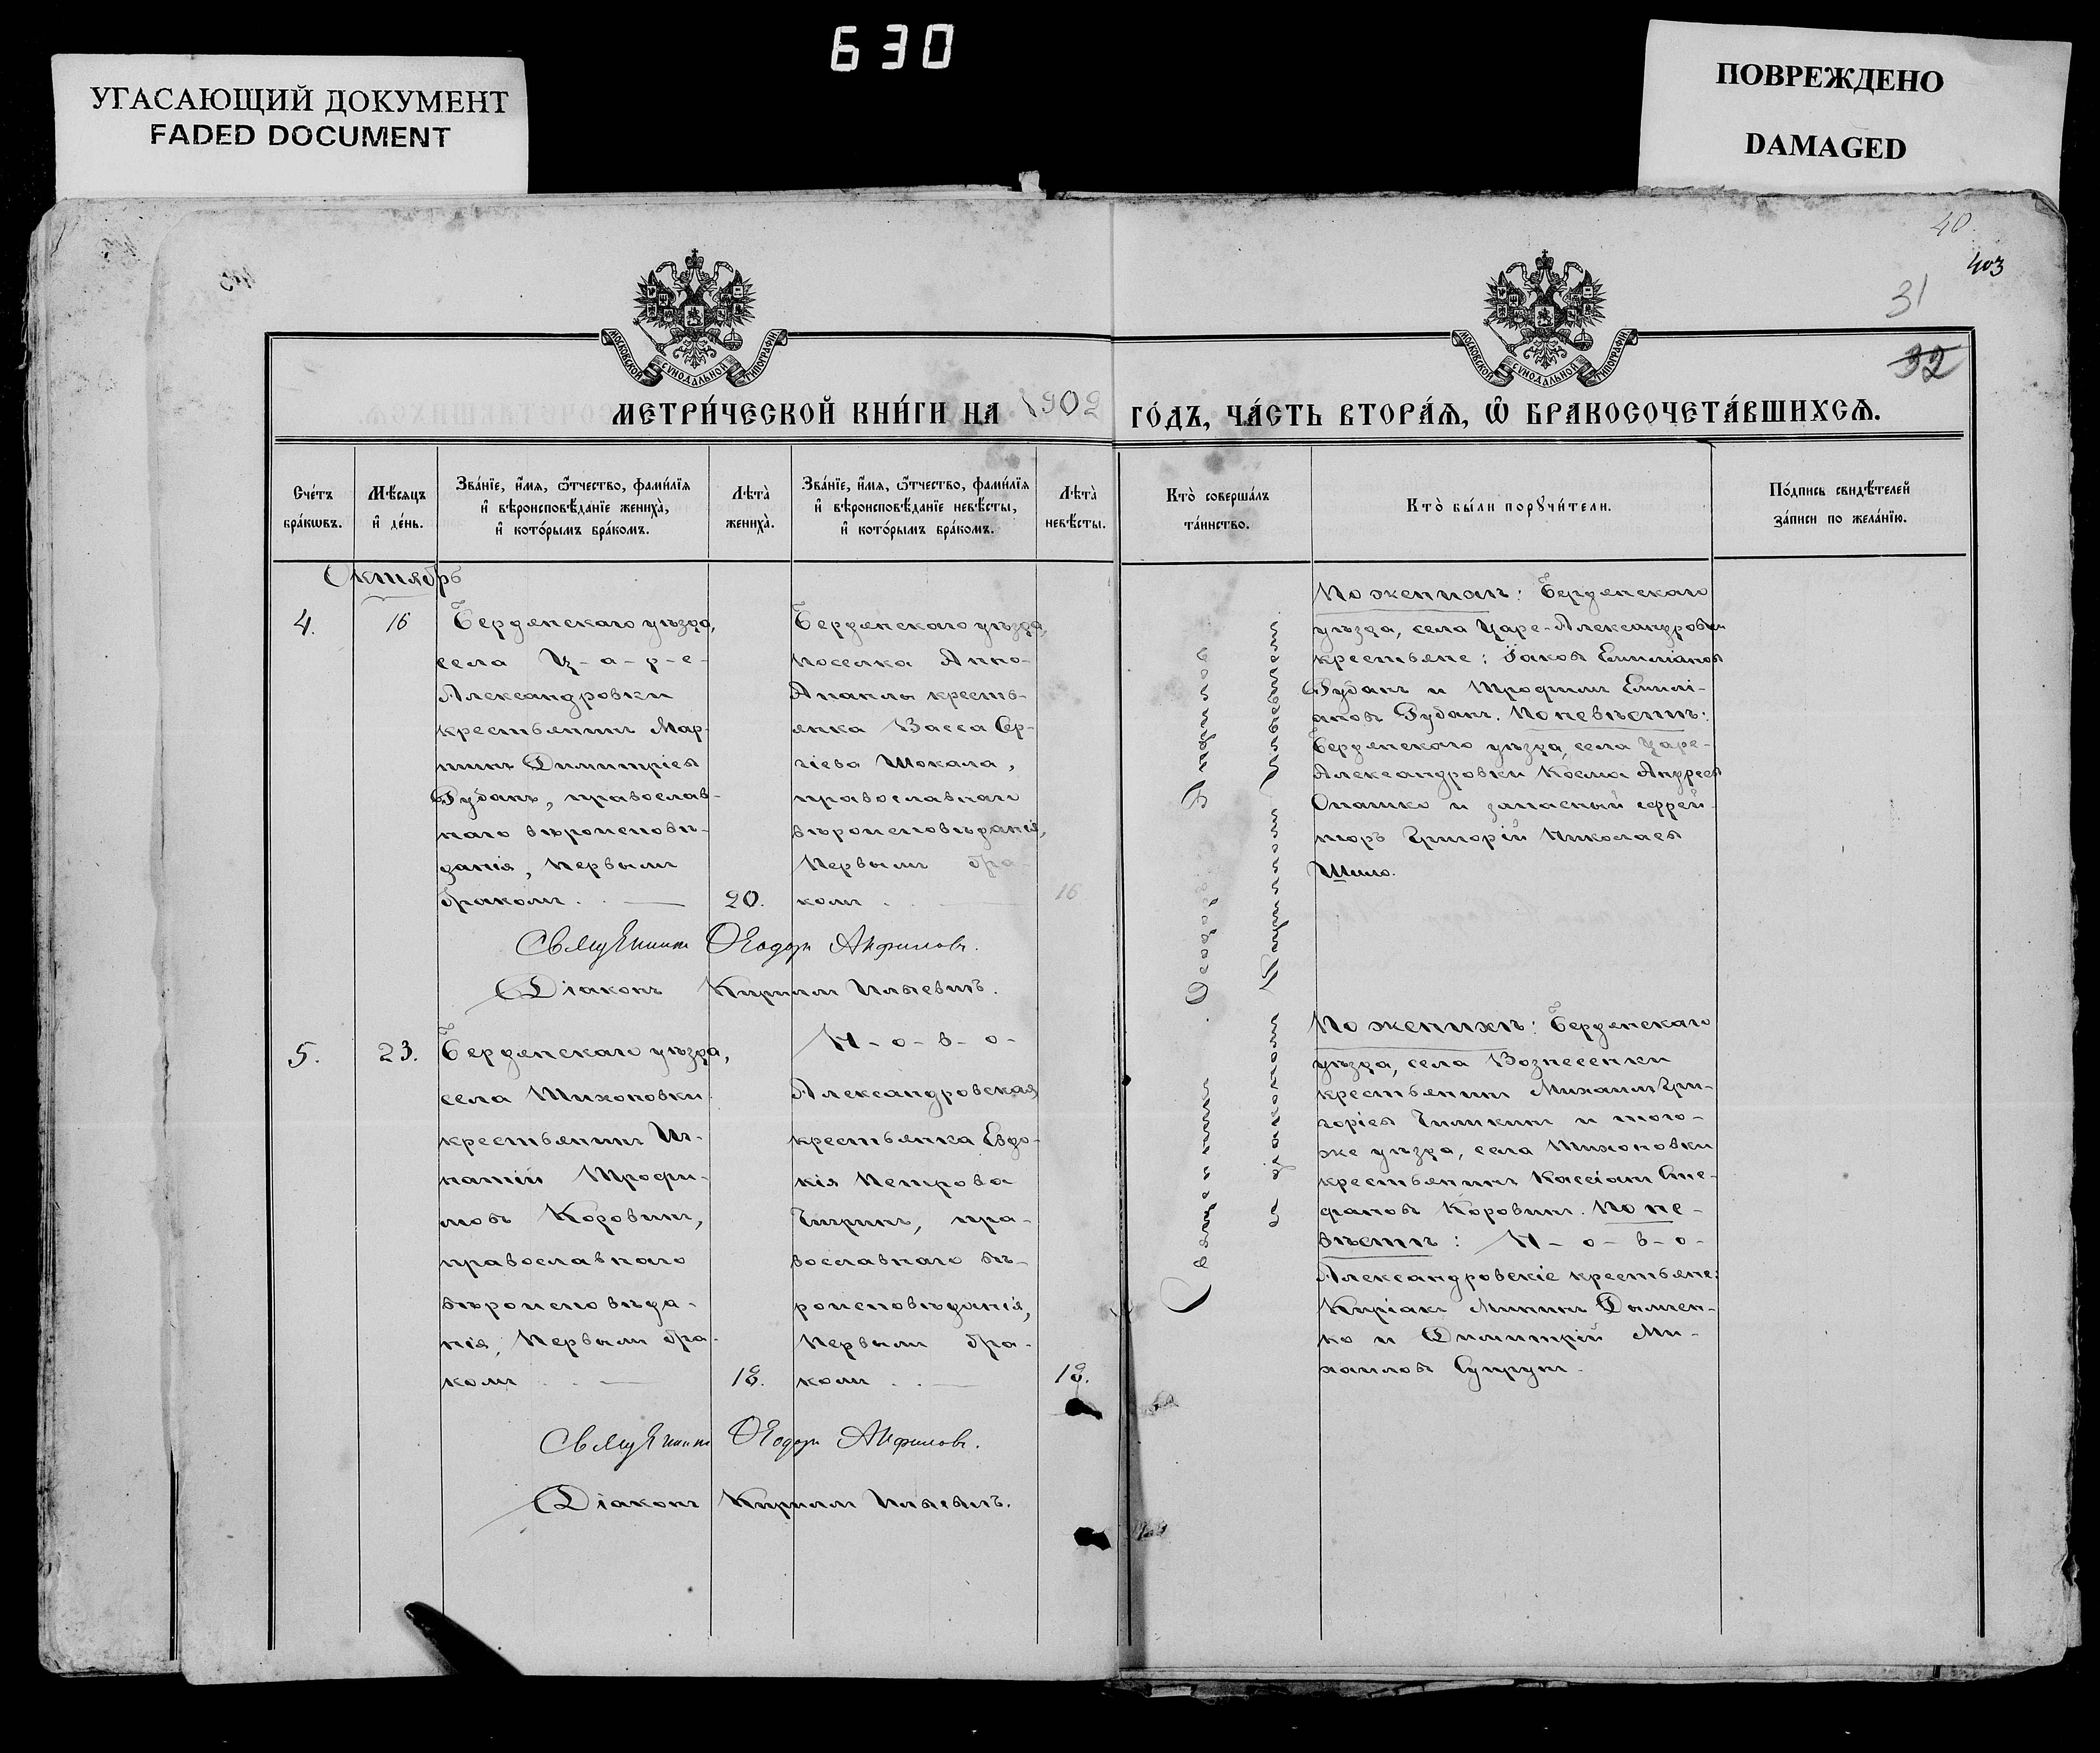 630
УГАСАЮЩИЙ ДОКУМЕНТ
FADED DOCUMENT
ПОВРЕЖДЕНО
DAMAGED
40.
403
31
32
МОСКОВСКОЙ СУНОДАЛЬНОЙ ТИПОГРАФІИ
МОСКОВСКОЙ СУНОДАЛЬНОЙ ТИПОГРАФІИ
МЕТРИ́ЧЕСКОЙ КНИ́ГИ НА 1902 ГО́ДЪ, ЧА́СТЬ ВТОРА́Ѧ, Ѽ БРАКОСОЧЕТА́ВШИХСѦ.
Сче́тъ
бра́кѡвъ.
Мѣ́сяцъ
и҆ де́нь.
Зва́нїе, и҆́мя, ѻ҆́тчество, фами́лїя
и҆ вѣроисповѣ́данїе жениха̀,
и҆ кото́рымъ бра́комъ.
Лѣта̀
жениха̀.
Зва́нїе, и҆́мя, ѻ҆́тчество, фами́лїя
и҆ вѣроисповѣ́данїе невѣ́сты,
и҆ кото́рымъ бра́комъ.
Лѣта̀
невѣ́сты.
Кто̀ соверша́лъ
та́инство.
Кто̀ бы́ли порꙋчи́тели.
По́дпись свидѣ́телей
за́писи по жела́нїю.
Октябрь
4.
16
Бердянскаго уѣзда,
села Ц-а-р-е-
Александровки
крестьянинъ Мар-
тинъ Димитріевъ
Губанъ, православ-
наго вѣроисповѣ-
данія, первымъ
бракомъ.
20.
Бердянскаго уѣзда,
поселка Анно-
Апанлы кресть-
янка Васса Сер-
гіева Шокала,
православнаго
вѣроисповѣданія,
первымъ бра-
комъ.
16
Священникъ Ѳеодоръ Анфиловъ.
Діаконъ Кириллъ Ильевичъ.
По женихѣ: Бердянскаго
уѣзда, села Царе-Александровки
крестьяне: Іаковъ Емиліановъ
Губанъ и Трофимъ Емилі-
ановъ Губанъ. По невѣстѣ:
Бердянскаго уѣзда, села Царе-
Александровки Косма Андреевъ
Опашко и запасный ефрей-
торъ Григорій Николаевъ
Шило.
Священникъ Ѳеодоръ Анфиловъ
съ діакономъ Кирилломъ Ильевичемъ
5.
23.
Бердянскаго уѣзда,
села Тихоновки
крестьянинъ Иг-
натій Трофи-
мовъ Коровинъ,
православнаго
вѣроисповѣда-
нія, первымъ бра-
комъ
18.
Н-о-в-о-
Александровская
крестьянка Евдо-
кія Петрова
Чигринъ, пра-
вославнаго вѣ-
роисповѣданія,
первымъ бра-
комъ
18.
Священникъ Ѳеодоръ Анфиловъ.
Діаконъ Кириллъ Ильевичъ.
По женихѣ: Бердянскаго
уѣзда, села Вознесенки
крестьянинъ Михаилъ Гри-
горіевъ Чиликинъ и того-
же уѣзда, села Тихоновки
крестьянинъ Кассіанъ Сте-
фановъ Коровинъ. По не-
вѣстѣ: Н-о-в-о-
Александровскіе крестьяне:
Киріакъ Мининъ Дымчен-
ко и Димитрій Ми-
хаиловъ Супрун-